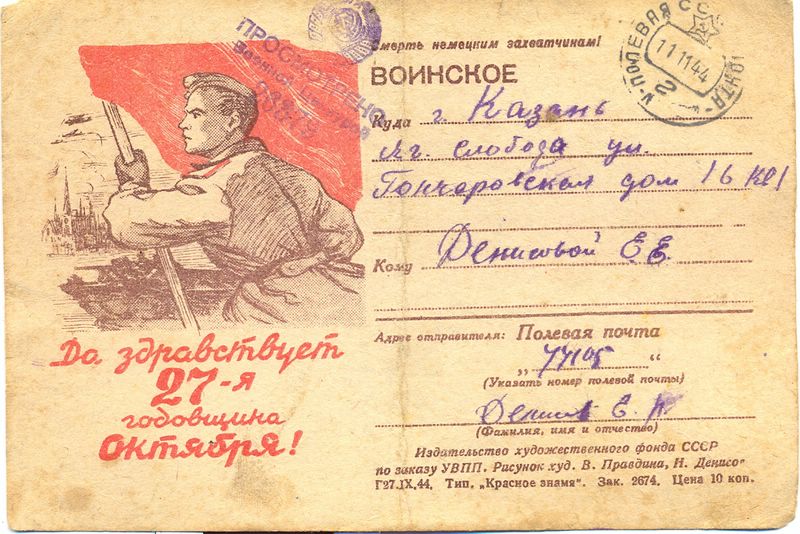 Смерть немецким захватчинам!
ВОИНСКОЕ
Куда г. Казань
Яг. слобода ул.
Гончаровская дом 16 кв 1
Кому Денисовой Е Е
Адрес отправителя: Полевая почта
„ 77105 “
(Указать номер полевой почты)
Денисов Е.
(Фамилия, имя и отчество)
Издательство художественного фонда СССР
по заказу УВПП. Рисунок худ. В. Правдина, Н. Денисо
Г27.IX.44. Тип. „Красное знамя". Зак. 2674. Цена 10 коп.
Да здравствует
27-я
годовщина
Октября!
ПРОСМОТРЕНО
Военной Цензурой
ПОЛЕВАЯ ПОЧТА
11 11 44